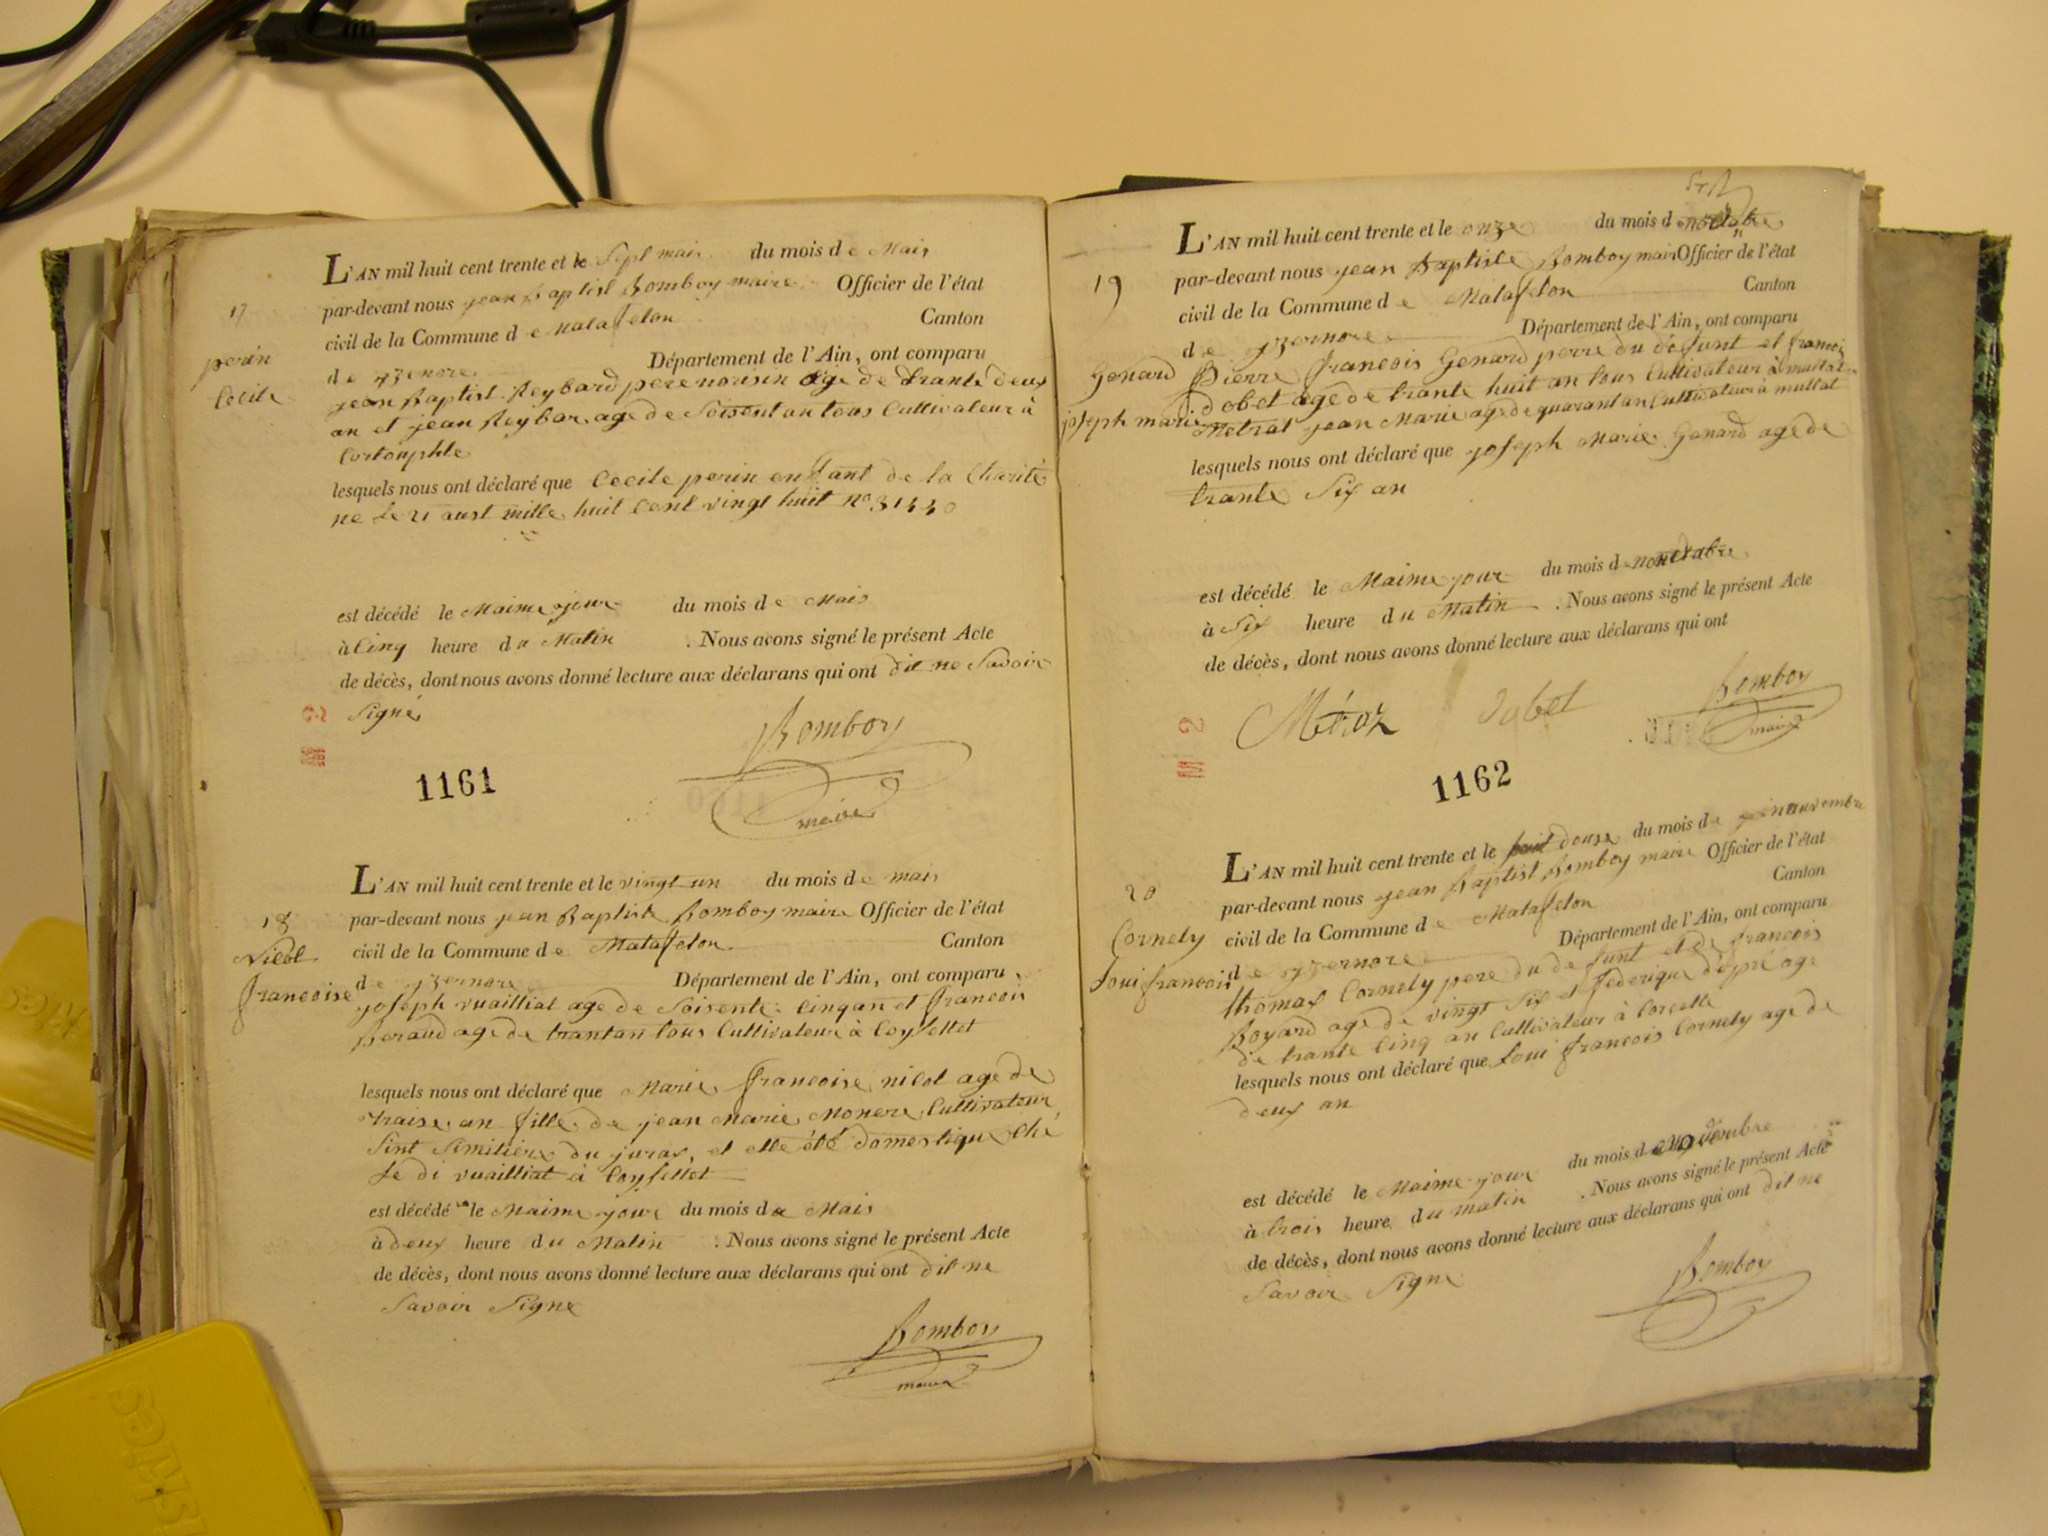 17
perin
Cecile
L'AN mil huit cent trente et le Sept mais du mois de Mais
par-devant nous jean Baptist Bomboy maire Officier de l'état
civil de la Commune de Matafelon Canton
de yzernore Département de l'Ain, ont comparu
jean Baptist Reybard pere nourin age de trante deux
an et jean Reybar age de Soisent an tous Cultivateur à
Cortouphle
lesquels nous ont déclaré que Cecile perin enfant de la Charité
ne Le 21 aust mille huit Cent vingt huit no
est décédé le Maime jour du mois de Mais
à Cinq heure du Matin . Nous avons signé le présent Acte
de décès, dont nous avons donné lecture aux déclarans qui ont dit ne Savoir
Signé
Bomboy
maire
1161
18
Nicol
francoise
L'AN mil huit cent trente et le vingt un du mois de mais
par-devant nous jean Baptiste Bomboy maire Officier de l'état
civil de la Commune de Matafelon Canton
de yzernore Département de l'Ain, ont comparu
joseph vuailliat age de Soisente Cinq an et francois
Beraud age de trantan tous Cultivateur à Coyssellet
lesquels nous ont déclaré que Marie francoise nicol age de
traise an fille de jean Marie Monere Cultivateur
Sint Simitiere du juras, et elle été domestique Ché
Le di vuailliat à Coyssellet
est décédé le Maime jour du mois de Mais
à deux heure du Matin . Nous avons signé le présent Acte
de décès, dont nous avons donné lecture aux déclarans qui ont dit ne
Savoir Signe
Bomboy
maire
19
Genard
joseph marie
L'AN mil huit cent trente et le onze du mois d
par-devant nous jean Baptiste Bomboy mair Officier de l'état
civil de la Commune de Matafelon Canton
de yzernore Département de l'Ain, ont comparu
Pierre francois Genard perre du défunt et francois
dobet age de trante huit an tous Cultivateur à mullat
Metrat jean Marie age de quarant an Cultivateur à mullat
lesquels nous ont déclaré que joseph Marie Genard age de
trante Six an
est décédé le Maime jour du mois d
à Six heure du Matin . Nous avons signé le présent Acte
de décès, dont nous avons donné lecture aux déclarans qui ont
dobet
Bomboy
maire
1162
20
Cornely
Loui francois
L'AN mil huit cent trente et le douse du mois de nauvembre
par-devant nous jean Baptist Bomboy maire Officier de l'état
civil de la Commune de Matafelon Canton
de yzernore Département de l'Ain, ont comparu
thomas Cornely pere du defunt et de francois
Boyard age de vingt Six et federique dépré age
de trante Cinq an Cultivateur à Corcelle
lesquels nous ont déclaré que Loui francois Cornely age de
deux an
est décédé le Maime jour du mois de
à trois heure du matin . Nous avons signé le présent Acte
de décès, dont nous avons donné lecture aux déclarans qui ont dit ne
Savoir Signe
Bomboy